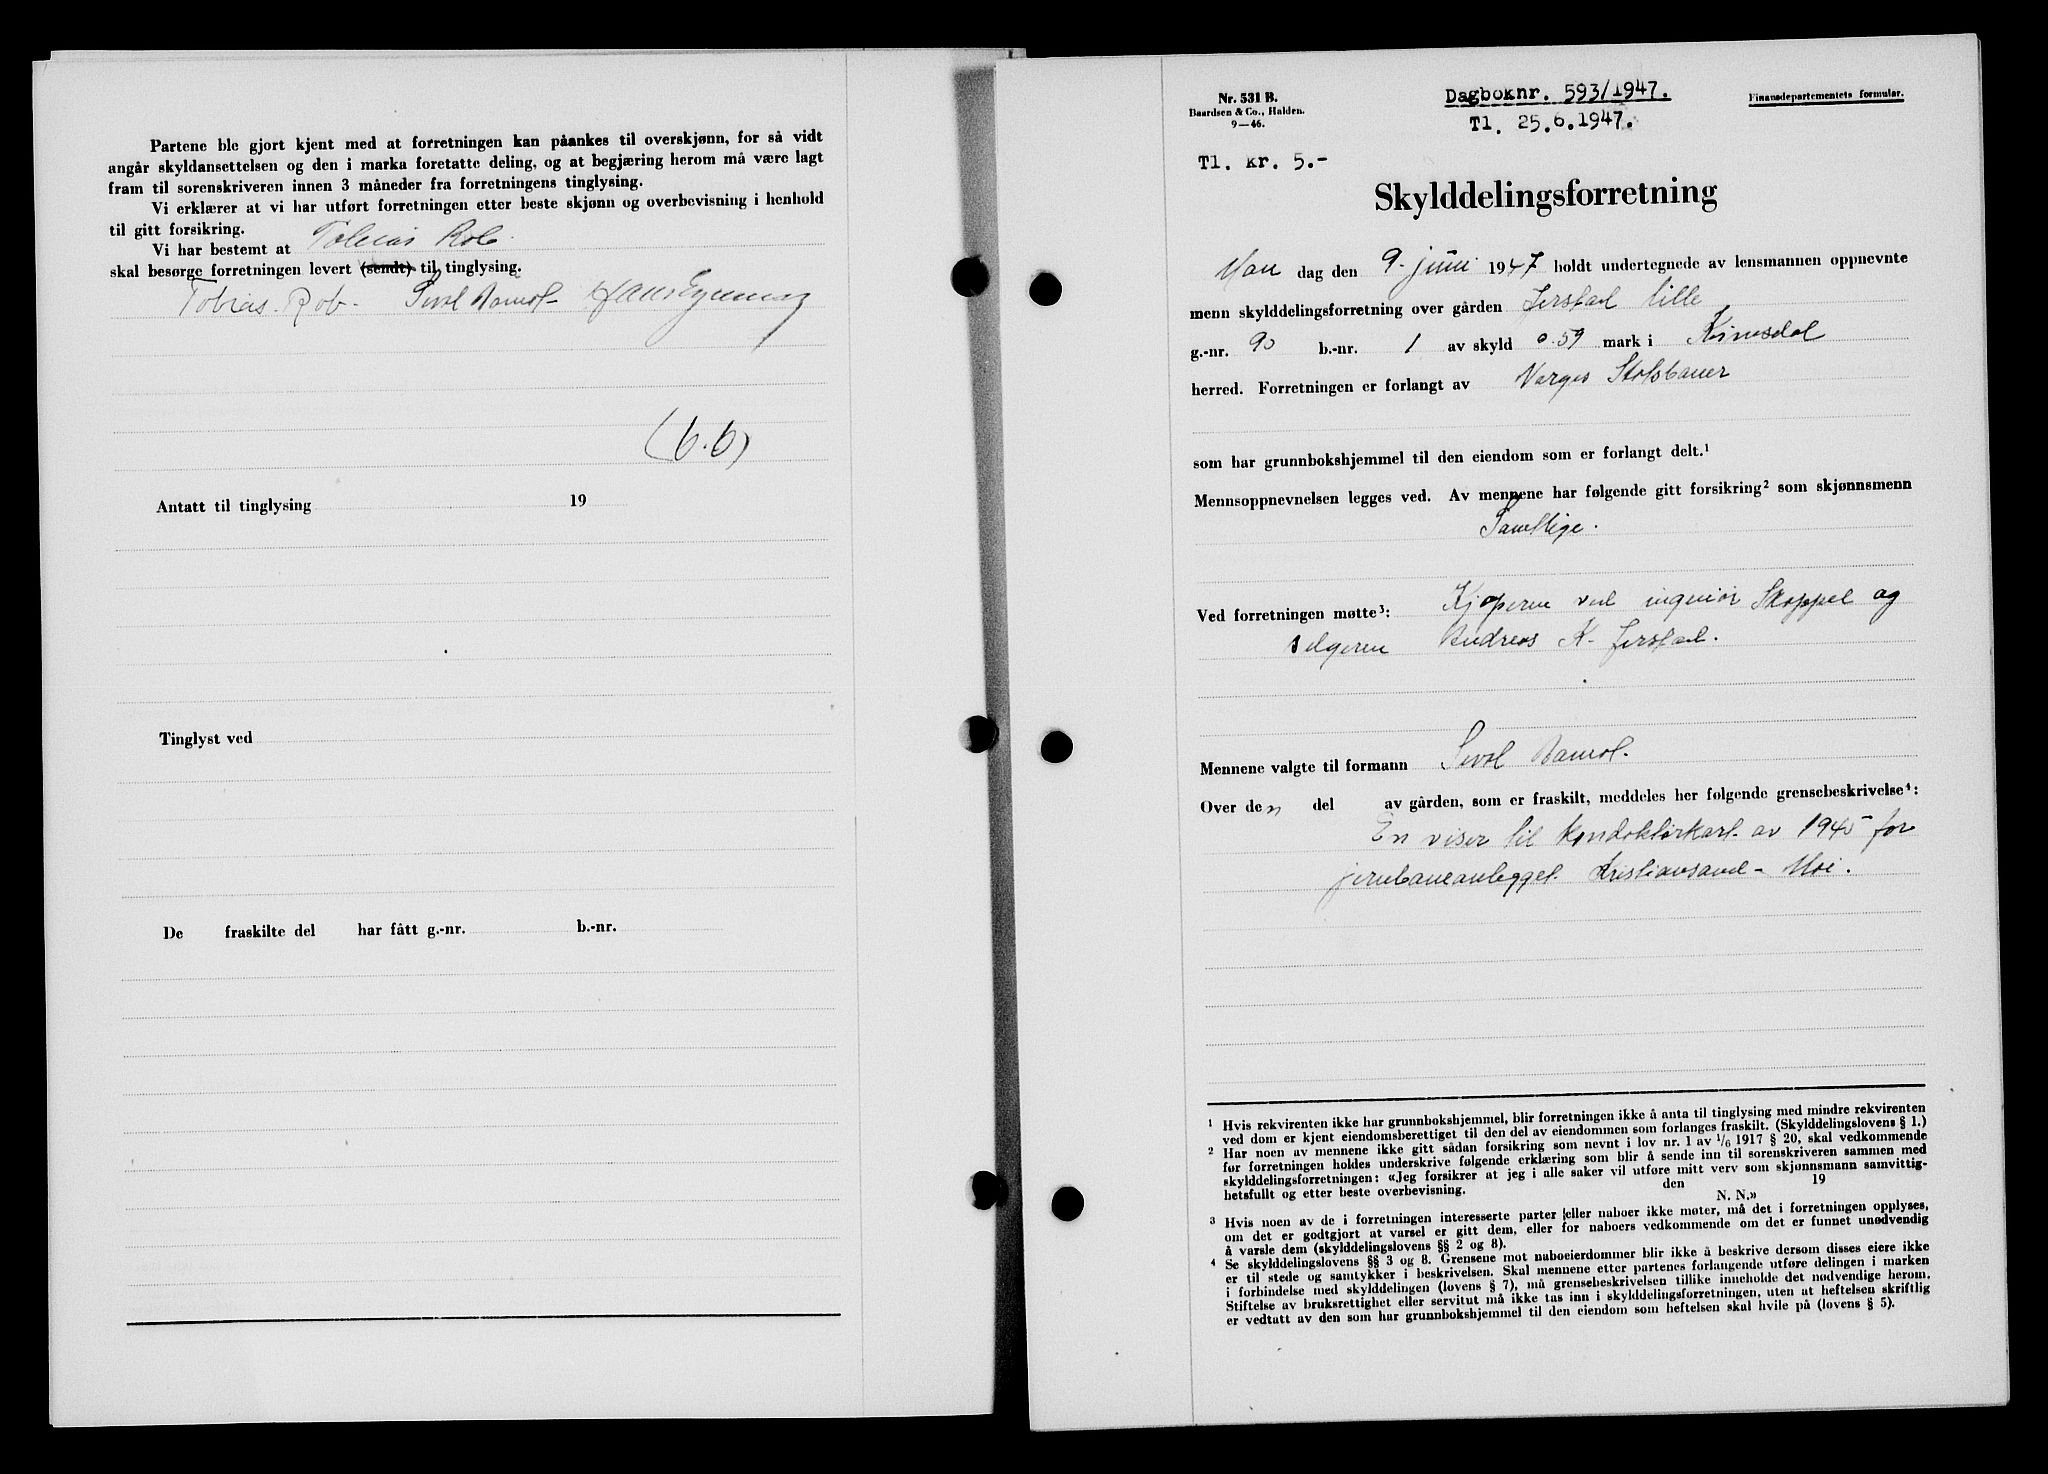 Partene ble gjort kjent med at forretningen kan påankes til overskjønn, for så vidt
angår skyldansettelsen og den i marka foretatte deling, og at begjæring herom må være lagt
fram til sorenskriveren innen 3 måneder fra forretningens tinglysing.
Vi erklærer at vi har utført forretningen etter beste skjønn og overbevisning i henhold
til gitt forsikring.
Vi har bestemt at Tobias Rob.
skal besørge forretningen levert (sendt) til tinglysing.
Tobias. Rob. Sivol Hans
(b.b)
Antatt til tinglysing 19
Tinglyst ved
De fraskilte del har fått g.-nr. b.-nr.
Nr. 531 B.
Baardsen & Co., Halden.
9—46.
Dagboknr. 593/1947.
Tl. 25.6.1947.
Finansdepartementets formular.
Tl. kr. 5.-
Skylddelingsforretning
Man dag den 9. juni 1947 holdt undertegnede av lensmannen oppnevnte
menn skylddelingsforretning over gården Jerstad lille
g.-nr. 90 b.-nr. 1 av skyld 0.59 mark i Kvinesdal
herred. Forretningen er forlangt av Norges Statsbaner
som har grunnbokshjemmel til den eiendom som er forlangt delt.¹
Mennsoppnevnelsen legges ved. Av mennene har følgende gitt forsikring² som skjønnsmenn
Samtlige.
Ved forretningen møtte³: Kjøperen ved ingeniør Skoppel og
selgeren Andreas K. Jerstad.
Mennene valgte til formann Sivol
Over den del av gården, som er fraskilt, meddeles her følgende grensebeskrivelse⁴:
En viser til konduktørkart av 1945 for
jernbaneanlegget Kristiansand - Moi.
¹ Hvis rekvirenten ikke har grunnbokshjemmel, blir forretningen ikke å anta til tinglysing med mindre rekvirenten
ved dom er kjent eiendomsberettiget til den del av eiendommen som forlanges fraskilt. (Skylddelingslovens § 1.)
² Har noen av mennene ikke gitt sådan forsikring som nevnt i lov nr. 1 av 1/6 1917 § 20, skal vedkommende
før forretningen holdes underskrive følgende erklæring som blir å sende inn til sorenskriveren sammen med
skylddelingsforretningen: «Jeg forsikrer at jeg i alle saker vil utføre mitt verv som skjønnsmann samvittig-
hetsfullt og etter beste overbevisning. den 19
N. N.»
³ Hvis noen av de i forretningen interesserte parter eller naboer ikke møter, må det i forretningen opplyses,
om det er godtgjort at varsel er gitt dem, eller for naboers vedkommende om det er funnet unødvendig
å varsle dem (skylddelingslovens §§ 2 og 8).
⁴ Se skylddelingslovens §§ 3 og 8. Grensene mot naboeierdommer blir ikke å beskrive dersom disses eiere ikke
er til stede og samtykker i beskrivelsen. Skal mennene etter partenes forlangende utføre delingen i marken
i forbindelse med skylddelingen (lovens § 7), må grensebeskrivelsen tillike inneholde det nødvendige herom.
Stiftelse av bruksrettighet eller servitut må ikke tas inn i skylddelingsforretningen, uten at heftelsen skriftlig
er vedtatt av den som har grunnbokshjemmel til den eiendom som heftelsen skal hvile på (lovens § 5).